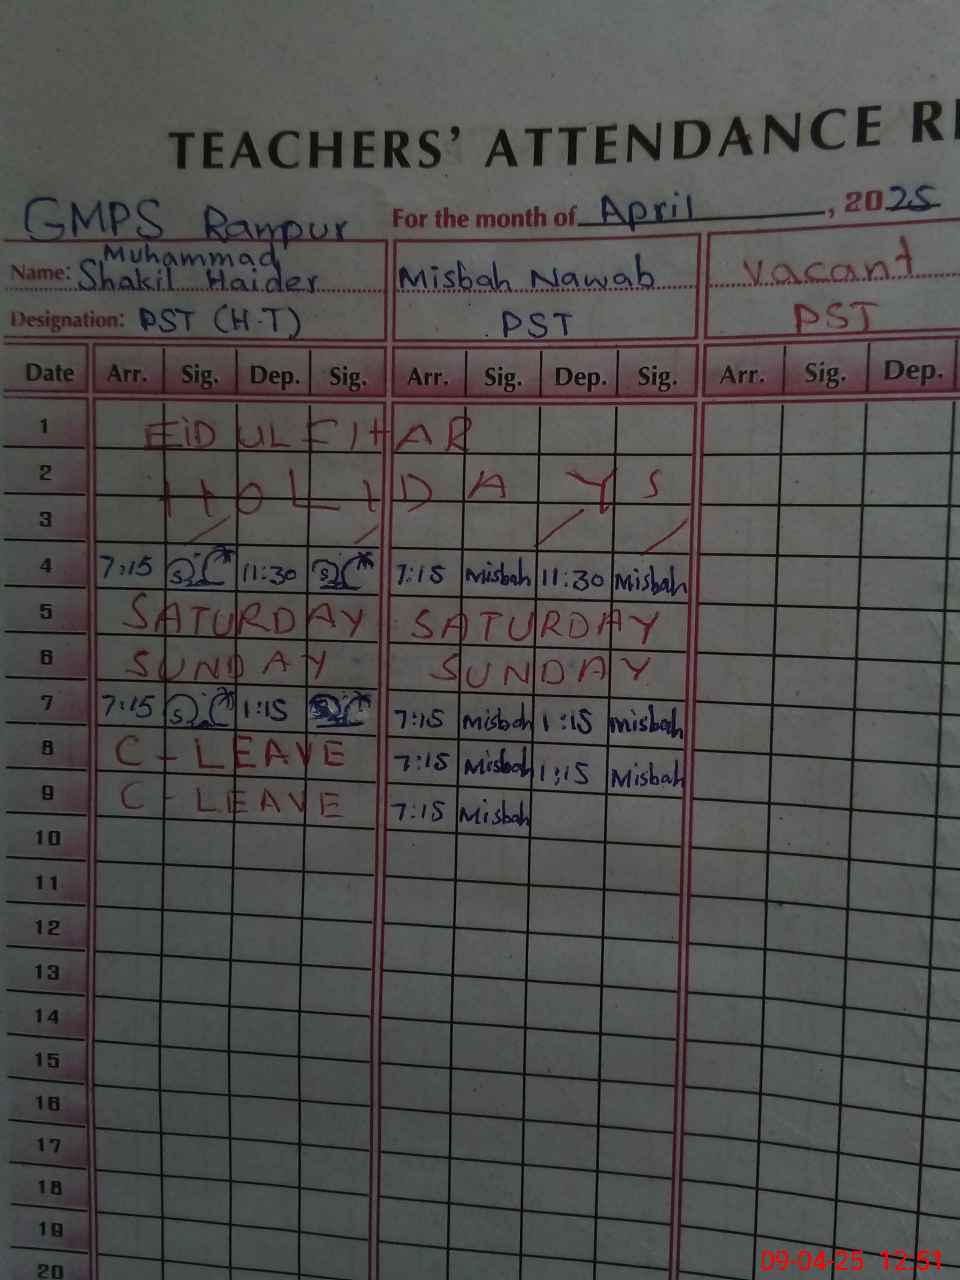 TEACHERS' ATTENDANCE
GMPS Ranpur For the month of April, 2025
Name: Muhammad Shakil Haider Misbah Nawab vacant
Designation: PST (H-T) PST PST
Date Arr. Sig. Dep. Sig. Arr. Sig. Dep. Sig. Arr. Sig. Dep.
1 EiDULFITAR
2 HOLIDAYS
3
4 7:15 11:30 7:15 Misbah 11:30 Misbah
5 SATURDAY SATURDAY
6 SUNDAY SUNDAY
7 7:15 1:15 7:15 Misbah 1:15 Misbah
8 C-LEAVE 7:15 Misbah 1:15 Misbah
9 C-LEAVE 7:15 Misbah
10
11
12
13
14
15
16
17
18
19
20
09-04-25 12:51